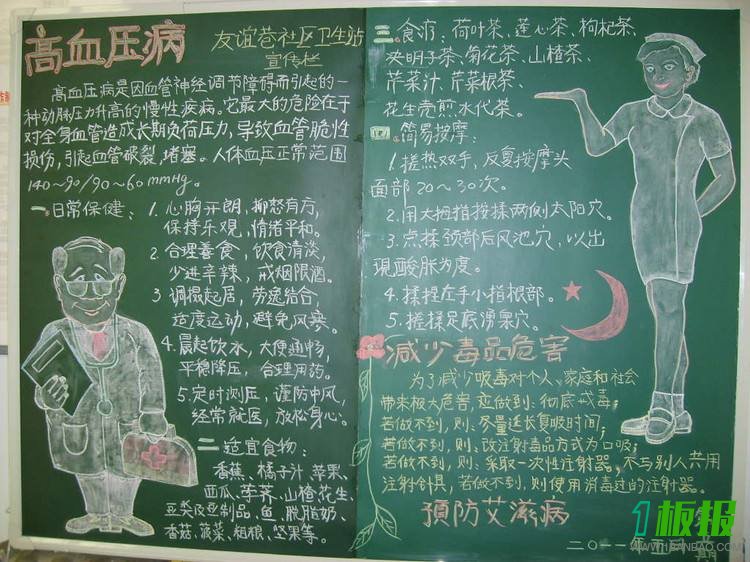 高血压病
友谊巷社区卫生站
宣传栏
高血压病是因血管神经调节障碍而引起的一
种动脉压力升高的慢性疾病。它最大的危险在于
对全身血管造成长期负荷压力,导致血管脆性
损伤,引起血管破裂、堵塞。人体血压正常范围
140~90/90~60mmHg。
一.日常保健:1.心胸开朗,抑怒有方,
保持乐观,情绪平和。
2.合理善食,饮食清淡,
少进辛辣,戒烟限酒。
3.调摄起居,劳逸结合,
适度运动,避免风寒。
4.晨起饮水,大便通畅,
平稳降压,合理用药。
5.定时测压,谨防中风,
经常就医,放松身心。
二.适宜食物:
香蕉、橘子汁、苹果、
西瓜、荸荠、山楂、花生、
豆类及豆制品、鱼、脱脂奶、
香菇、菠菜、粗粮、坚果等。
三.食疗:荷叶茶、莲心茶、枸杞茶、
决明子茶、菊花茶、山楂茶、
芹菜汁、芹菜根茶、
花生壳煎水代茶。
四.简易按摩:
1.搓热双手,反复按摩头
面部20~30次。
2.用大拇指按揉两侧太阳穴。
3.点揉颈部后风池穴,以出
現酸胀为度。
4.揉捏左手小指根部。
5.搓揉足底湧泉穴。
减少毒品危害
为了减少吸毒对个人、家庭和社会
带来极大危害,应做到:彻底戒毒;
若做不到,则:尽量延长复吸时间;
若做不到,则:改注射毒品方式为口吸;
若做不到,则:采取一次性注射器,不与别人共用
注射针具,若做不到,则使用消毒过的注射器。
預防艾滋病
二〇一一年五月
1板报
WWW.1BANBAO.COM